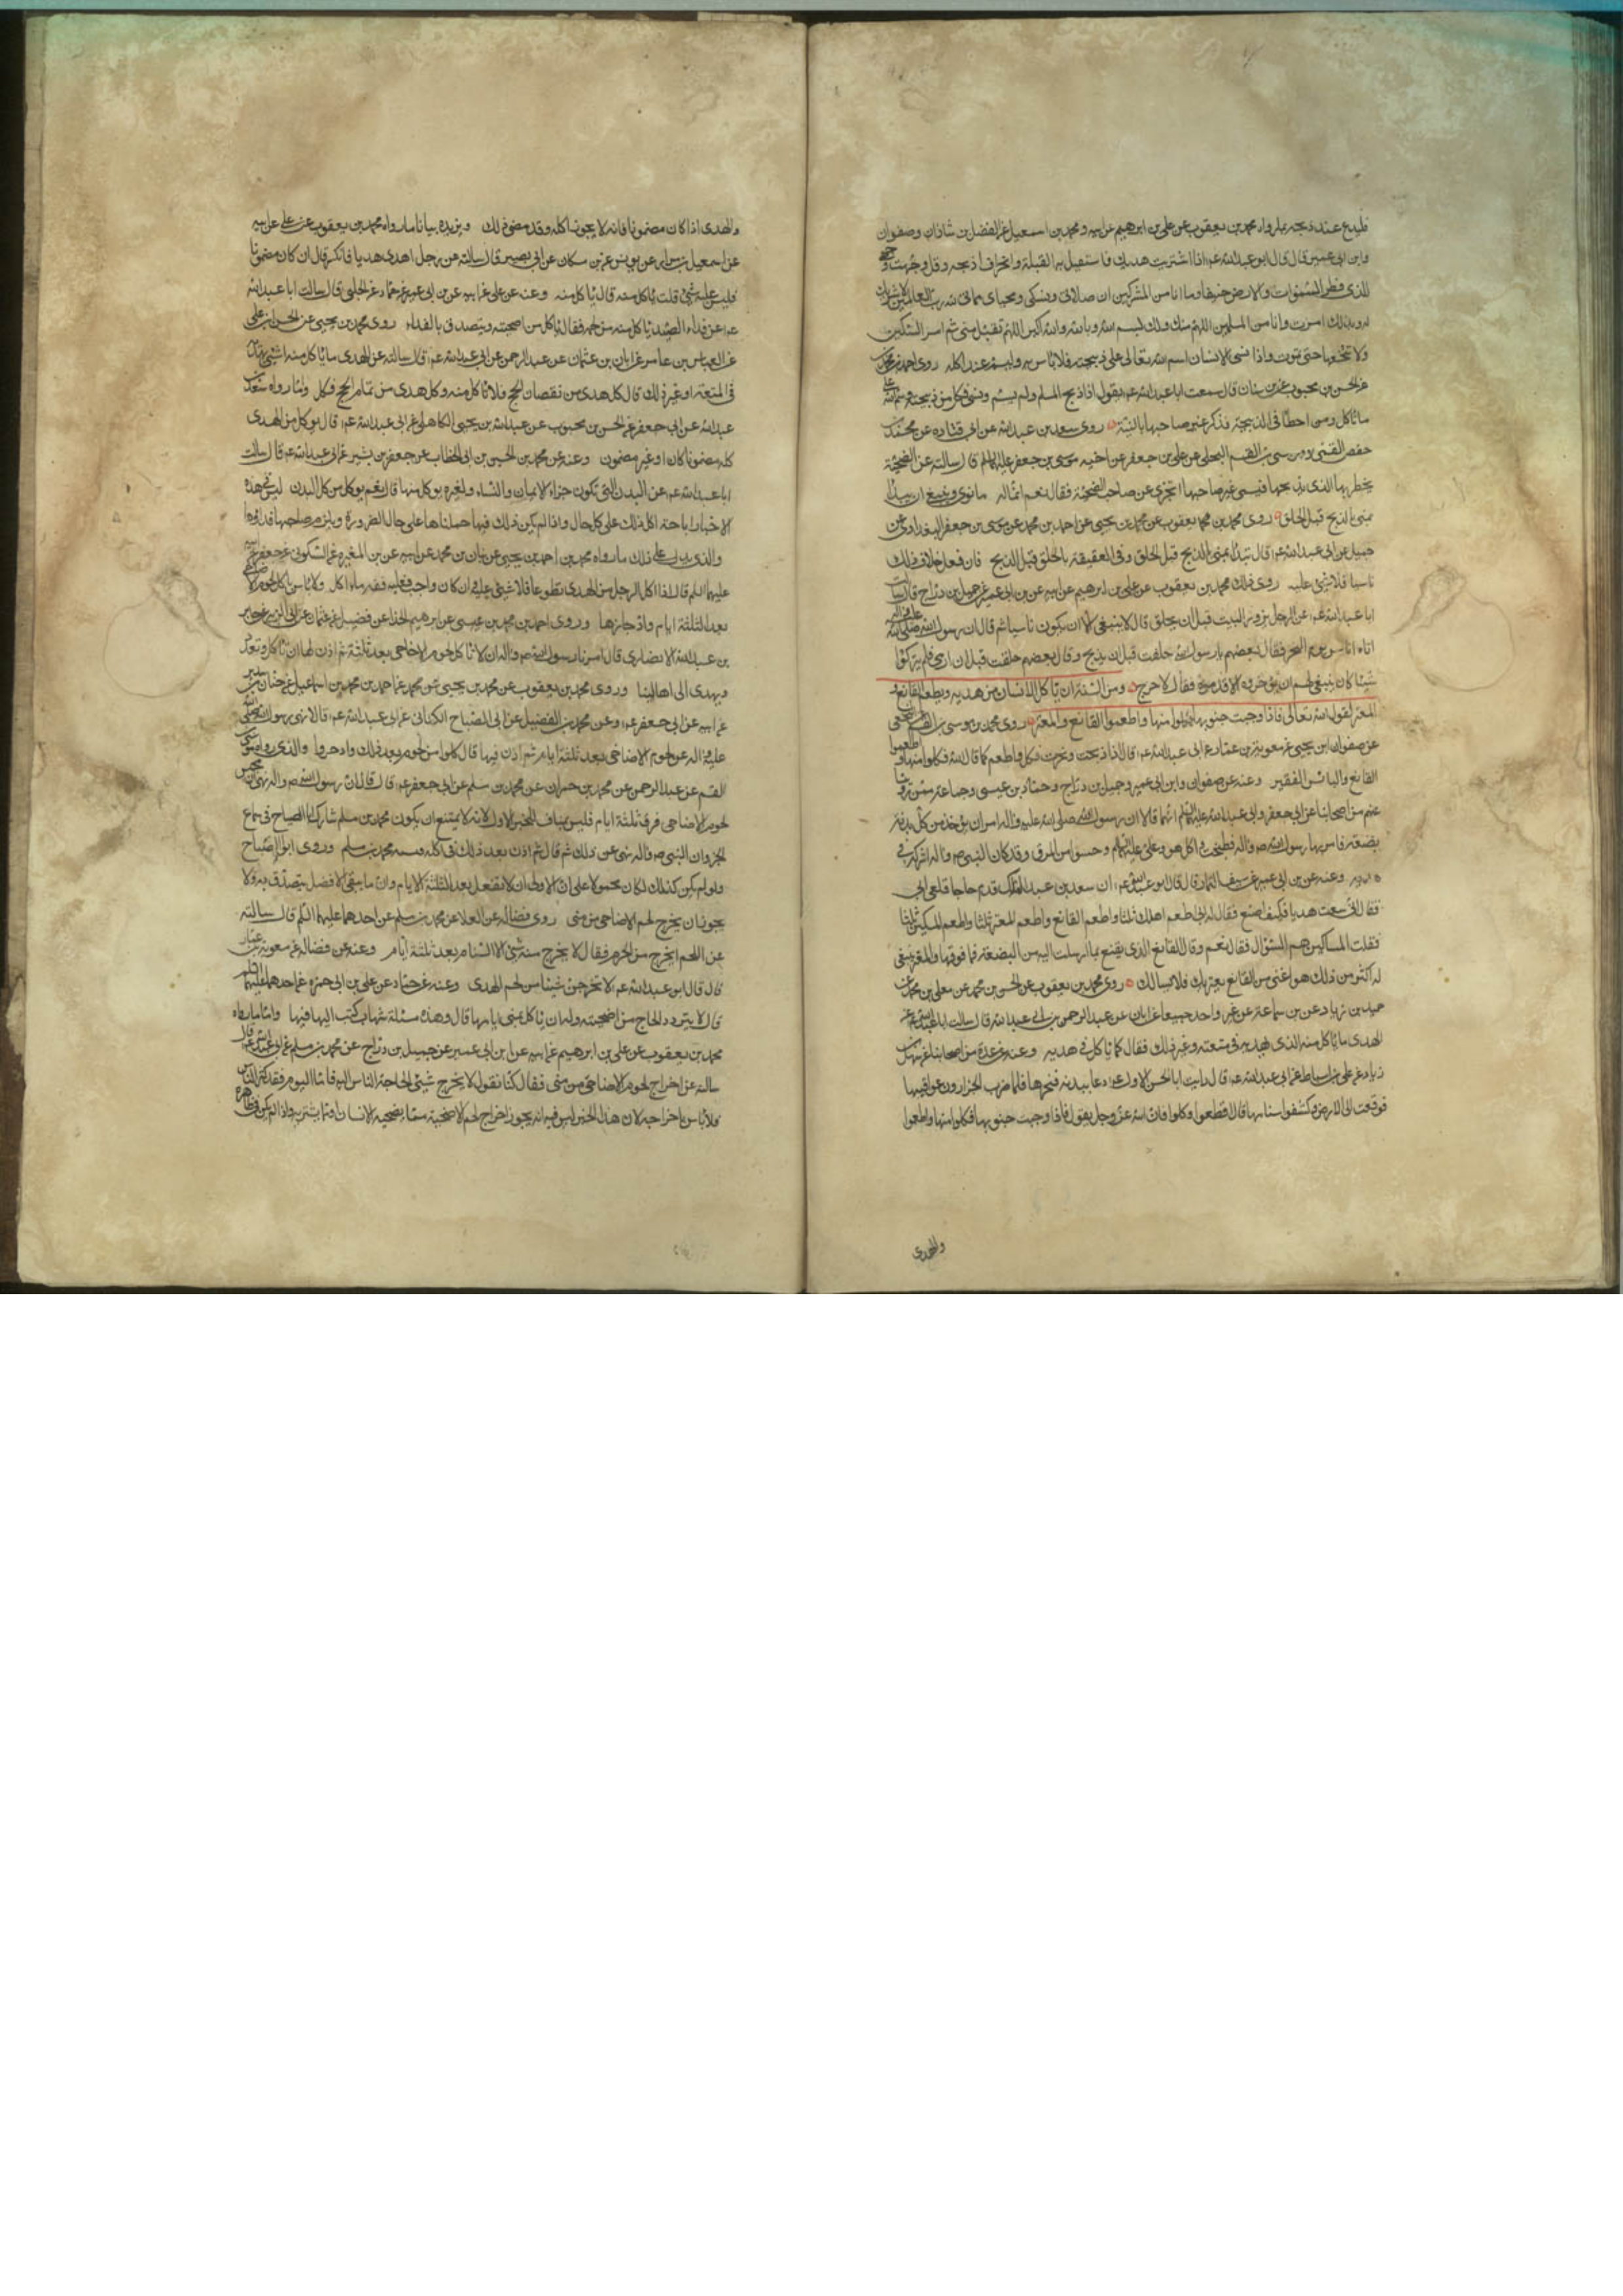 فليدع عند ذبحه بما رواه محمد بن يعقوب عن علي بن ابرهيم عن ابيه ومحمد بن اسمعيل عن الفضل بن شاذان وصفوان
وابن ابي عمير قال قال ابو عبد الله عم اذا اشتريت هديك فاستقبل به القبلة وانحره او اذبحه وقل وجهت وجهي
للذي فطر السموات والارض حنيفا وما انا من المشركين ان صلاتي ونسكي ومحياي ومماتي لله رب العالمين لا شريك
له وبذلك امرت وانا من المسلمين اللهم منك ولك بسم الله وبالله والله اكبر اللهم تقبل مني ثم امر السكين
ولا تنخعها حتى تموت واذا نسي الانسان اسم الله تعالى على ذبيحته فلا باس به وليسم عند اكله روى احمد بن محمد
عن الحسن بن محبوب عن ابن سنان قال سمعت ابا عبد الله عم يقول اذا ذبح المسلم ولم يسم ونسي فكل من ذبيحته وسم الله على
ما تاكل ومن اخطا في الذبيحة فذكر غير صاحبها بالنية روى سعد بن عبد الله عن ابي قتاده عن محمد بن
حفص القمي وموسى بن القسم البجلي عن علي بن جعفر عن اخيه موسى بن جعفر عليهما السلم قال سالته عن الضحية
يخطي بها الذي يذبحها فيسمي غير صاحبها اتجزي عن صاحب الضحية فقال نعم انما له ما نوى وينبغي ان يبدا
بمنى بالذبح قبل الحلق روى محمد بن يعقوب عن محمد بن يحيى عن احمد بن محمد عن موسى بن جعفر البغدادي عن
جميل عن ابي عبد الله عم قال تبدا بمنى بالذبح قبل الحلق وفي العقيقة بالحلق قبل الذبح فان فعل خلاف ذلك
ناسيا فلا شي عليه روى ذلك محمد بن يعقوب عن علي بن ابرهيم عن ابيه عن ابن ابي عمير عن جميل بن دراج قال سالت
ابا عبد الله عم عن الرجل يزور البيت قبل ان يحلق قال لا ينبغي الا ان يكون ناسيا ثم قال ان رسول الله صلى الله عليه واله
اتاه اناس يوم النحر فقال بعضهم يا رسول الله حلقت قبل ان اذبح وقال بعضهم حلقت قبل ان ارمي فلم يتركوا
شيئا كان ينبغي لهم ان يؤخروه الا قدموه فقال لا حرج ومن السنة ان ياكل الانسان من هديه ويطعم القانع و
المعتر لقول الله تعالى فاذا وجبت جنوبها فكلوا منها واطعموا القانع والمعتر روى محمد بن موسى بن القسم النخعي
عن صفوان ابن يحيى عن معوية بن عمار عن ابي عبد الله عم قال اذا ذبحت ونحرت فكل واطعم كما قال الله فكلوا منها واطعموا
القانع والبائس الفقير وعنه عن صفوان وابن ابي عمير وجميل بن دراج وحماد بن عيسى وجماعة ممن روينا
عنهم من اصحابنا عن ابي جعفر وابي عبد الله عليهما السلم انهما قالا ان رسول الله صلى الله عليه واله امر ان يؤخذ من كل بدنة
بضعة فامر بها رسول الله ص واله فطبخت واكل هو وعلي عليهما السلم وحسوا من المرق وقد كان النبي ص واله اشركه في
هديه وعنه عن ابن ابي عمير عن سيف التمار قال قال ابو عبد الله عم ان سعد بن عبد الملك قدم حاجا فلقي ابي
فقال اني سقت هديا فكيف اصنع فقال له ابي اطعم اهلك ثلثا واطعم القانع واطعم المعتر ثلثا واطعم المسكين ثلثا
فقلت المساكين هم السؤال فقال نعم وقال القانع الذي يقنع بما ارسلت اليه من البضعة فما فوقها والمعتر ينبغي
له اكثر من ذلك هو اغنى من القانع يعتريك فلا يسالك روى محمد بن يعقوب عن الحسين بن محمد عن معلى بن محمد عن
حميد بن زياد عن ابن سماعة عن غير واحد جميعا عن ابان عن عبد الرحمن بن ابي عبد الله قال سالت ابا عبد الله عم عن
الهدي ما ياكل منه الذي يهديه في متعته وغير ذلك فقال كما ياكل في هديه وعنه عن عدة من اصحابنا عن سهل بن
زياد عن علي بن اسباط عن ابي عبد الله عم قال رايت ابا الحسن الاول عم دعا ببدنة فنحرها فلما ضرب الجزارون عراقيبها
فوقعت الى الارض وكشفوا سنامها قال اقطعوا وكلوا فان الله عز وجل يقول فاذا وجبت جنوبها فكلوا منها واطعموا
والهدي
والهدي اذا كان مضمونا فانه لا يجوز اكله وقد مضى ذلك ويزيده بيانا ما رواه محمد بن يعقوب عن علي عن ابيه
عن اسمعيل بن مرار عن يونس عن ابن مسكان عن ابي بصير قال سالته عن رجل اهدى هديا فانكسر قال ان كان مضمونا
فليس عليه شي قلت ياكل منه قال ياكل منه وعنه عن علي عن ابيه عن ابن ابي عمير عن حماد عن الحلبي قال سالت ابا عبد الله
عم عن فداء الصيد ياكل منه من لحمه فقال ياكل من اضحيته ويتصدق بالفداء روى محمد بن يحيى عن الحسن بن علي
عن العباس بن عامر عن ابان بن عثمان عن عبد الرحمن عن ابي عبد الله عم قال سالته عن الهدي ما ياكل منه اشي يهديه
في المتعة او غير ذلك قال كل هدي من نقصان الحج فلا تاكل منه وكل هدي من تمام الحج فكل واما رواه سعد بن
عبد الله عن ابي جعفر عن الحسن بن محبوب عن عبد الله بن يحيى الكاهلي عن ابي عبد الله عم قال يوكل من الهدي
كله مضمونا كان او غير مضمون وعنه عن محمد بن الحسين بن ابي الخطاب عن جعفر بن بشير عن ابي عبد الله عم قال سالت
ابا عبد الله عم عن البدن التي تكون جزاء الايمان والنساء ولغيره يوكل منها قال نعم يوكل من كل البدن ليس في هذه
الاخبار اباحة اكل ذلك على كل حال واذا لم يكن ذلك فيها حملناها على حال الضرورة ويلزم صاحبها فداؤها
والذي يدل على ذلك ما رواه محمد بن احمد بن يحيى عن بنان بن محمد عن ابيه عن ابن المغيره عن السكوني عن جعفر عن ابيه
عليهما السلم قال اذا اكل الرجل من الهدي تطوعا فلا شي عليه وان كان واجبا فعليه قيمة ما اكل ولا باس باكل لحوم الاضاحي
بعد الثلثة ايام وادخارها وروى احمد بن محمد بن عيسى عن ابرهيم الحذا عن فضيل عن عثمان عن ابي الزبير عن جابر
بن عبد الله الانصاري قال امرنا رسول الله ص واله ان لا ناكل لحوم الاضاحي بعد ثلثة ثم اذن لنا ان ناكل ونقدد
ونهدي الى اهالينا وروى محمد بن يعقوب عن محمد بن يحيى عن احمد بن محمد بن اسماعيل عن حنان بن سدير
عن ابيه عن ابي جعفر عم وعن محمد بن الفضيل عن ابي الصباح الكناني عن ابي عبد الله عم قالا نهى رسول الله صلى الله
عليه واله عن لحوم الاضاحي بعد ثلثة ايام ثم اذن فيها قال كلوا من لحوم بعد ذلك وادخروا والذي رواه موسى بن
القسم عن عبد الرحمن عن محمد بن حمران عن محمد بن مسلم عن ابي جعفر عم قال قال ان رسول الله ص واله نهى ان تحبس
لحوم الاضاحي فوق ثلثة ايام فليس بمناف للخبر الاول لانه لا يمتنع ان يكون محمد بن مسلم شارك ابا الصباح في سماع
الخبر وان النبي ص واله نهى عن ذلك ثم قال ثم اذن بعد ذلك في اكله ونسيه محمد بن مسلم وروى ابو الصباح
ولو لم يكن كذلك لكان محمولا على ان الاولى ان لا تفعل بعد الثلثة الايام وان ما يبقى الافضل يتصدق به ولا
يجوز ان يخرج لحم الاضاحي من منى روى فضاله عن العلا عن محمد بن مسلم عن احدهما عليهما السلم قال سالته
عن اللحم ايخرج من الحرم فقال لا يخرج منه شي الا السنام بعد ثلثة ايام وعنه عن فضاله عن معوية بن عمار
قال قال ابو عبد الله عم لا تخرجن شيئا من لحم الهدي وعنه عن حماد عن علي بن ابي حمزه عن احدهما عليهما السلم
قال لا يتزود الحاج من اضحيته وله ان ياكل بمنى ايامها قال وهذه مسئلة شهاب كتب اليه فيها واما ما رواه
محمد بن يعقوب عن علي بن ابرهيم عن ابيه عن ابن ابي عمير عن جميل بن دراج عن محمد بن مسلم عن ابي عبد الله عم قال
سالته عن اخراج لحوم الاضاحي من منى فقال كنا نقول لا يخرج شي لحاجة الناس اليه فاما اليوم فقد كثر الناس
فلا باس باخراجه لان هذا الخبر ليس فيه انه يجوز اخراج لحم الاضحية مما يضحيه الانسان او مما يشتريه واذا لم يكن في ظاهره